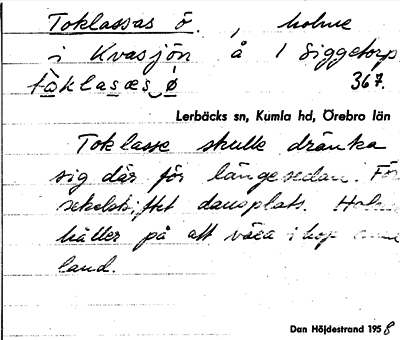 Toklassas ö. , holme
i Kvasjön å 1 Siggetorp
tòklasæs ö́ 367.
Lerbäcks sn, Kumla hd, Örebro län
Tok lasse skulle dränka
sig där för länge sedan. För
sekelskiftet dansplats.
håller på att växa ihop
land.
Dan Höjdestrand 1958